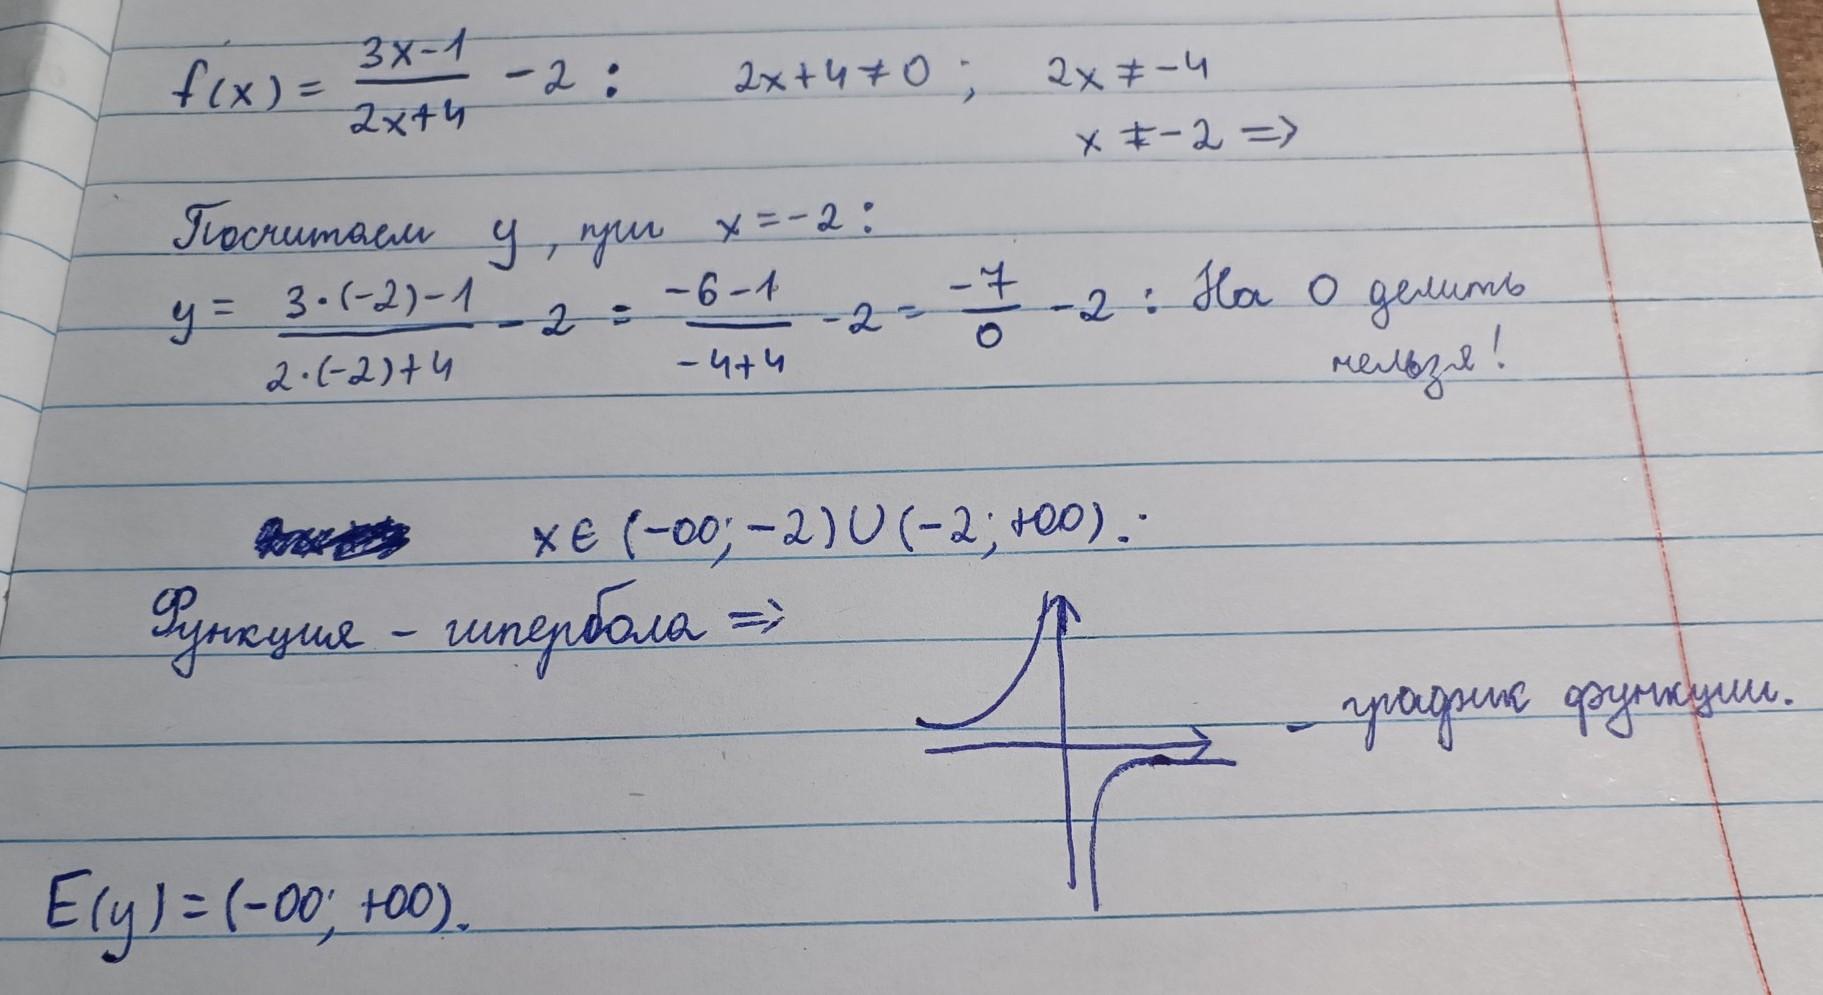 f(x) = (3x-1)/(2x+4) - 2 : 2x+4≠0 ; 2x ≠ -4
x ≠ -2 =>
Посчитаем y, при x = -2 :
y = (3·(-2)-1)/(2·(-2)+4) - 2 = (-6-1)/(-4+4) - 2 = (-7)/0 - 2 : На 0 делить
нельзя!
x ∈ (-∞; -2) ∪ (-2; +∞).:
Функция - гипербола =>
- график функции.
E(y) = (-∞; +∞).